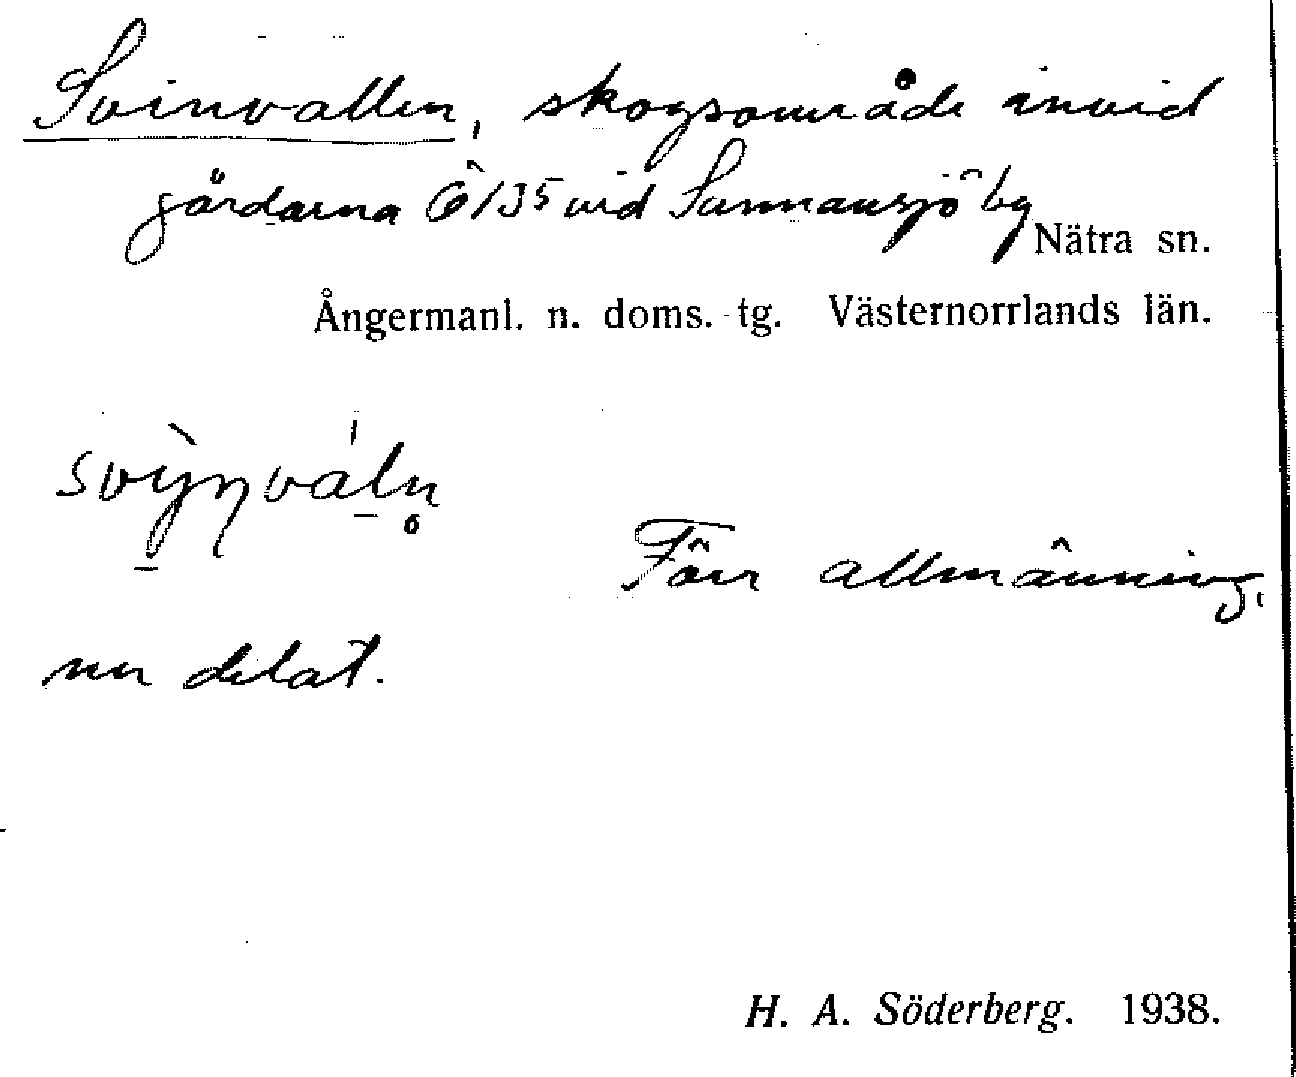 Svinvallen, skogsområde invid
gårdarna 6/35 vid Sunnansjö by
Nätra sn.
Ångermanl. n. doms. tg. Västernorrlands län.
Förr allmänning,
nu delat.
H. A. Söderberg. 1938.